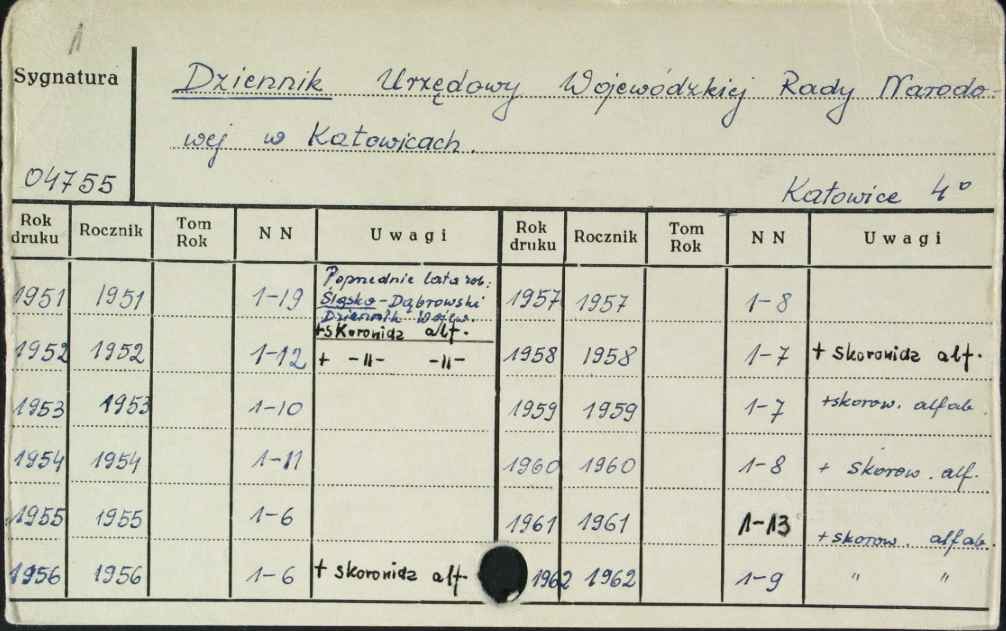 1
Sygnatura
Dziennik Urzędowy Wojewódzkiej Rady Narodo-
wej w Katowicach.
04755
Katowice 4°
Rok druku Rocznik Tom Rok NN Uwagi Rok druku Rocznik Tom Rok NN Uwagi
1951 1951 1-19 Poprzednie lata zob: Śląsko-Dąbrowski Dziennik Wojew. +skorowidz alf. 1957 1957 1-8
1952 1952 1-12 + -||- -||- 1958 1958 1-7 + skorowidz alf.
1953 1953 1-10 1959 1959 1-7 +skorow. alfab.
1954 1954 1-11 1960 1960 1-8 + skorow. alf.
1955 1955 1-6 1961 1961 1-13 + skorow. alfab.
1956 1956 1-6 + skorowidz alf. 1962 1962 1-9 " "